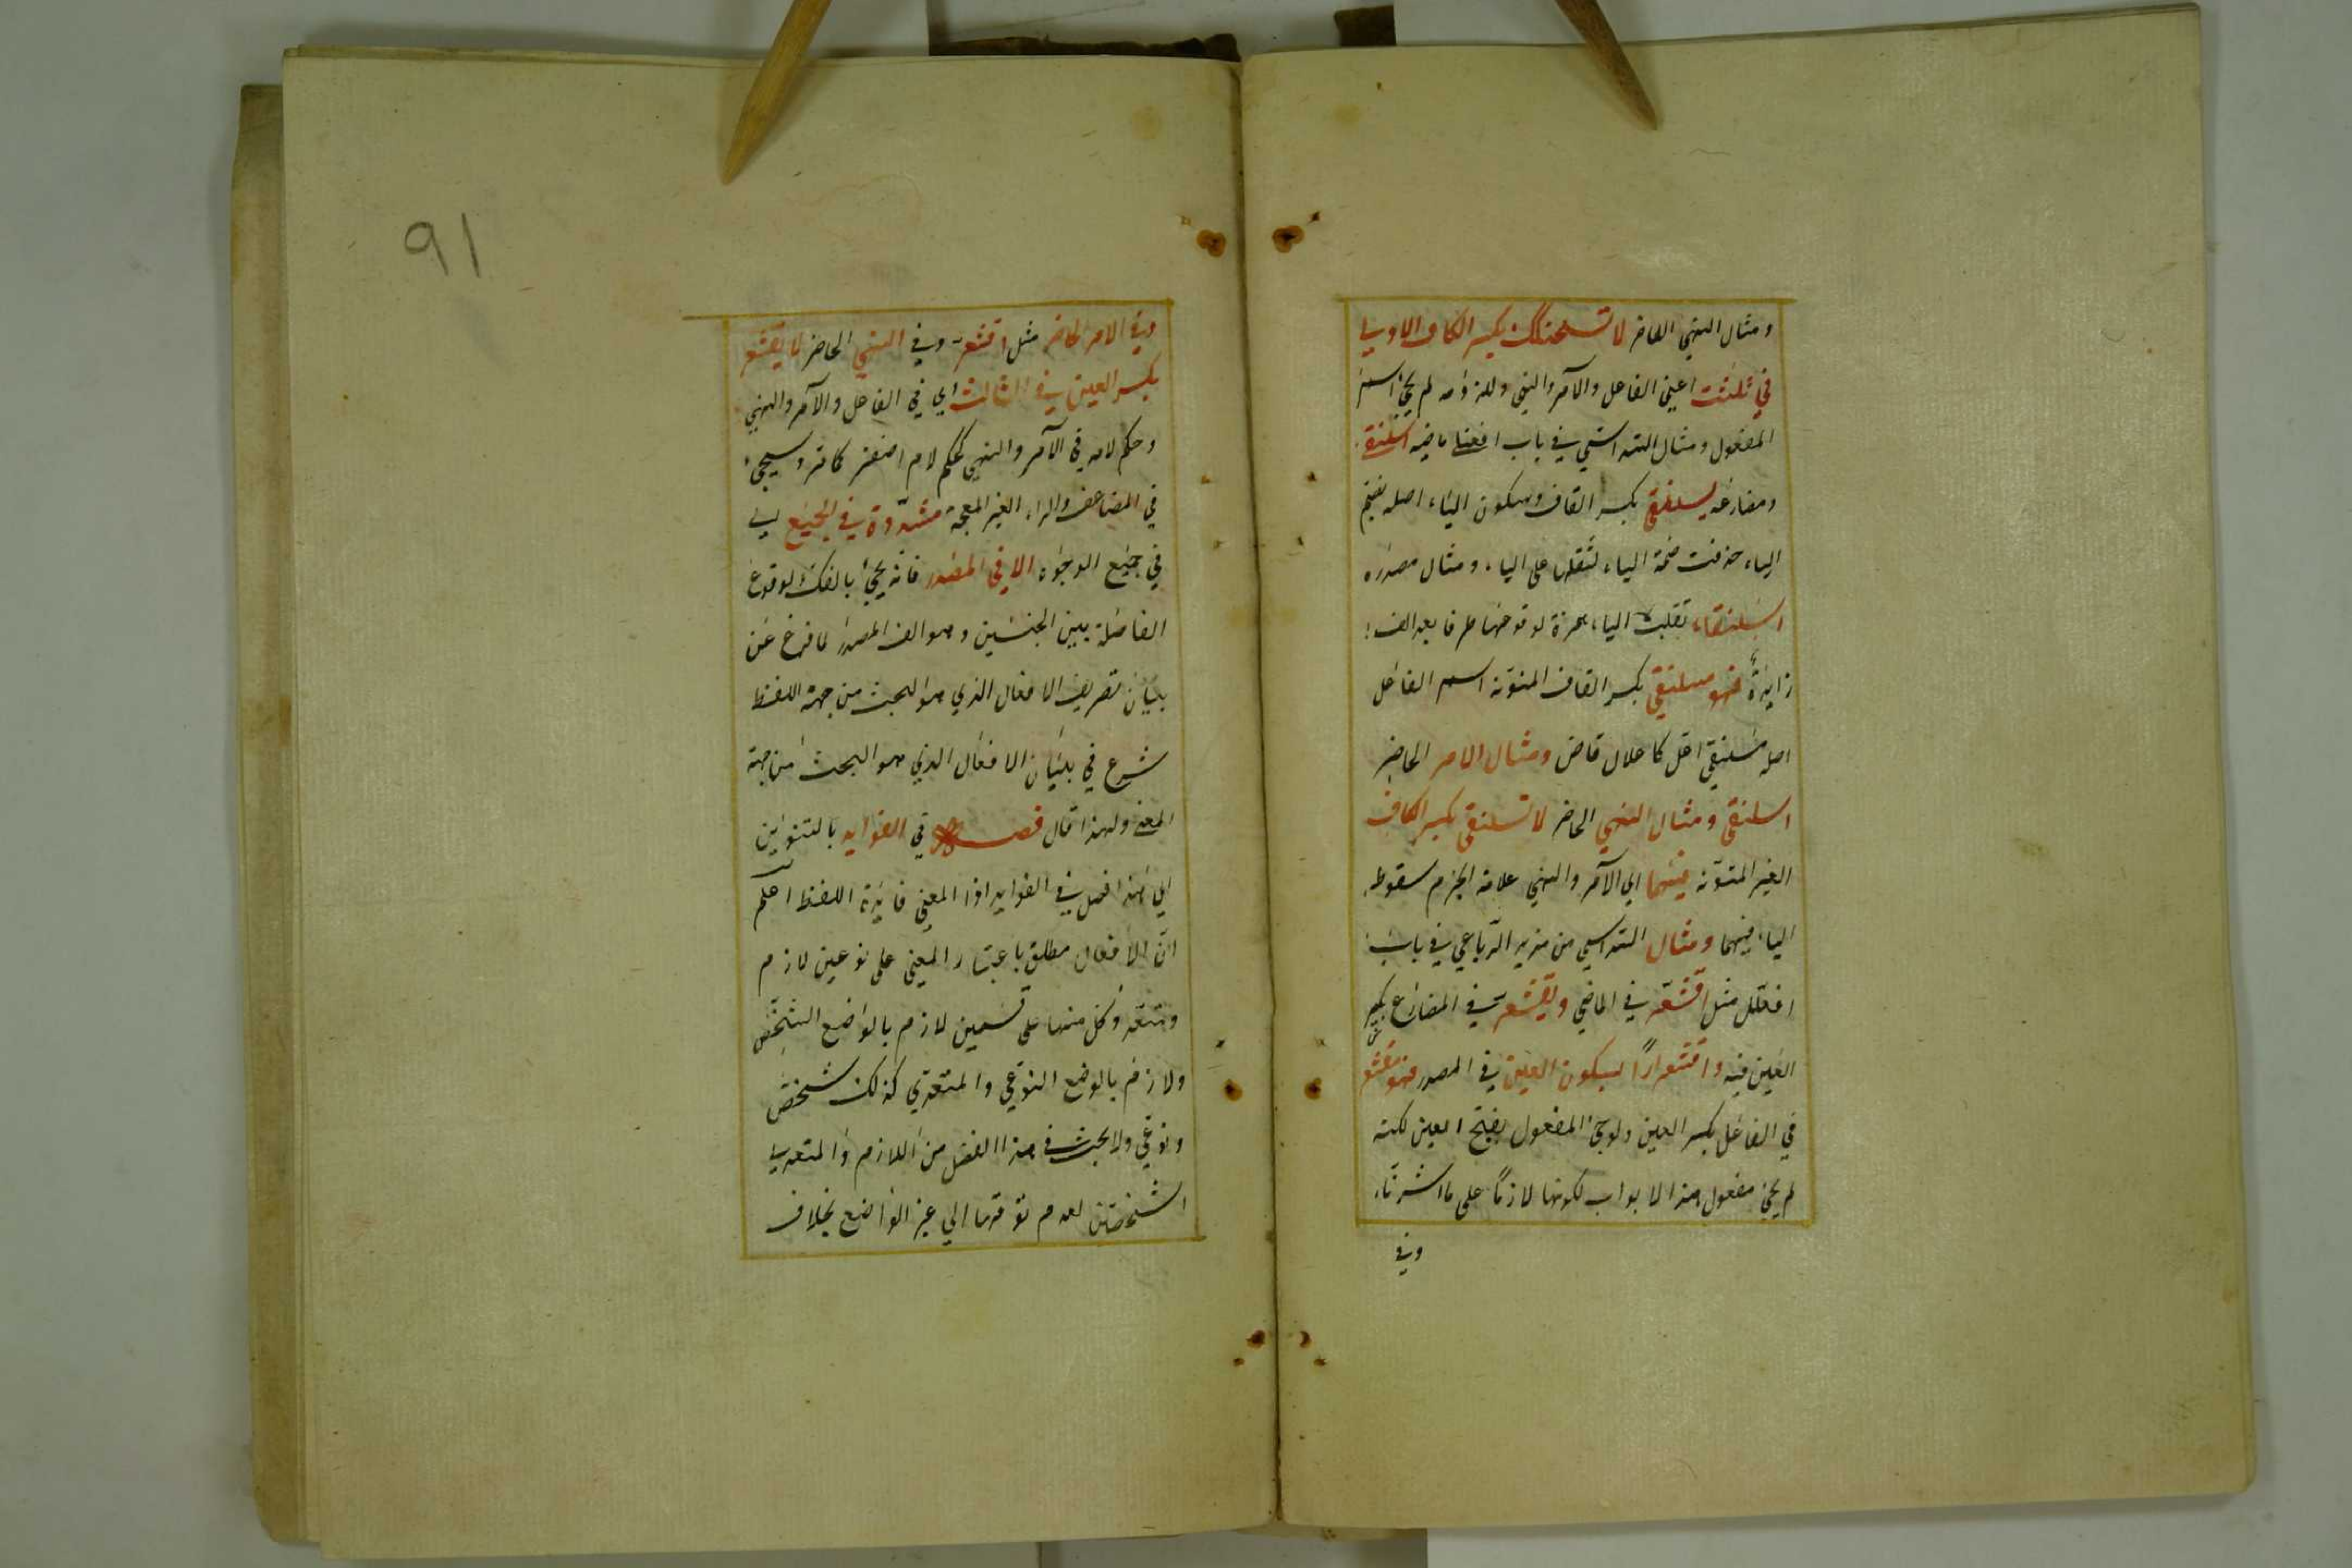 ومثال النهي الحاضر لا تسحنكك بكسر الكاف الاولي
في ثلثت اعني الفاعل والآمر والنهي وللزومه لم يجئ اسم
المفعول ومثال السداسي في باب افعنلى ماضيه اسلنقى
ومضارعه يسلنقي بكسر القاف وسكون الياء اصله بضم
الياء حذفت ضمة الياء لثقلها على الياء ومثال مصدره
اسلنقاء تقلبت الياء همزة لوقوعها طرفا بعد الف
زايدة فهو مسلنقي بكسر القاف المنونة اسم الفاعل
اصله مسلنقي اعل كاعلال قاض ومثال الامر الحاضر
اسلنقي ومثال النهي الحاضر لا تسلنقي بكسر الكاف
الغير المنونة فيهما اي الآمر والنهي علامة الجزم سقوط
الياء فيهما ومثال السداسي من مزيد الرباعي في باب
افعلل مثل اقشعر في الماضي ويقشعر في المضارع بكسر
العين فيه واقشعرارًا بسكون العين في المصدر فهو مقشعر
في الفاعل بكسر العين ولو جئ المفعول بفتح العين لكنه
لم يجئ مفعول هذا الابواب لكونها لازمًا على ما اشرنا
وفي
91
وفي الامر الحاضر مثل اقشعر وفي النهي الحاضر لا يقشعر
بكسر العين في الثالث اي في الفاعل والآمر والنهي
وحكم لامه في الآمر والنهي كحكم لام اصفر كامر وسيجئ
في المضاعف والراء الغير المعجمة مشددة في الجميع اي
في جميع الوجوه الا في المصدر فانه يجئ بالفك لوقوع
الفاصلة بين الجنسين وهو الف المصدر لما فرغ عن
بيان تصريف الافعال الذي هو البحث من جهة اللفظ
شرع في بيان الافعال الذي هو البحث من جهة
المعنى ولهذا قال فصل في الفوايد بالتنوين
اي هذا فصل في الفوايد اذا المعني فايدة اللفظ اعلم
ان الافعال مطلق باعتبار المعني على نوعين لازم
ومتعد وكل منها على قسمين لازم بالواضع الشخص
ولازم بالوضع النوعي والمتعدي كذلك شخص
ونوعي ولا بحث في هذا الفصل من اللازم والمتعدي
الشخصين لعدم توقرها الي غير الواضع بخلاف